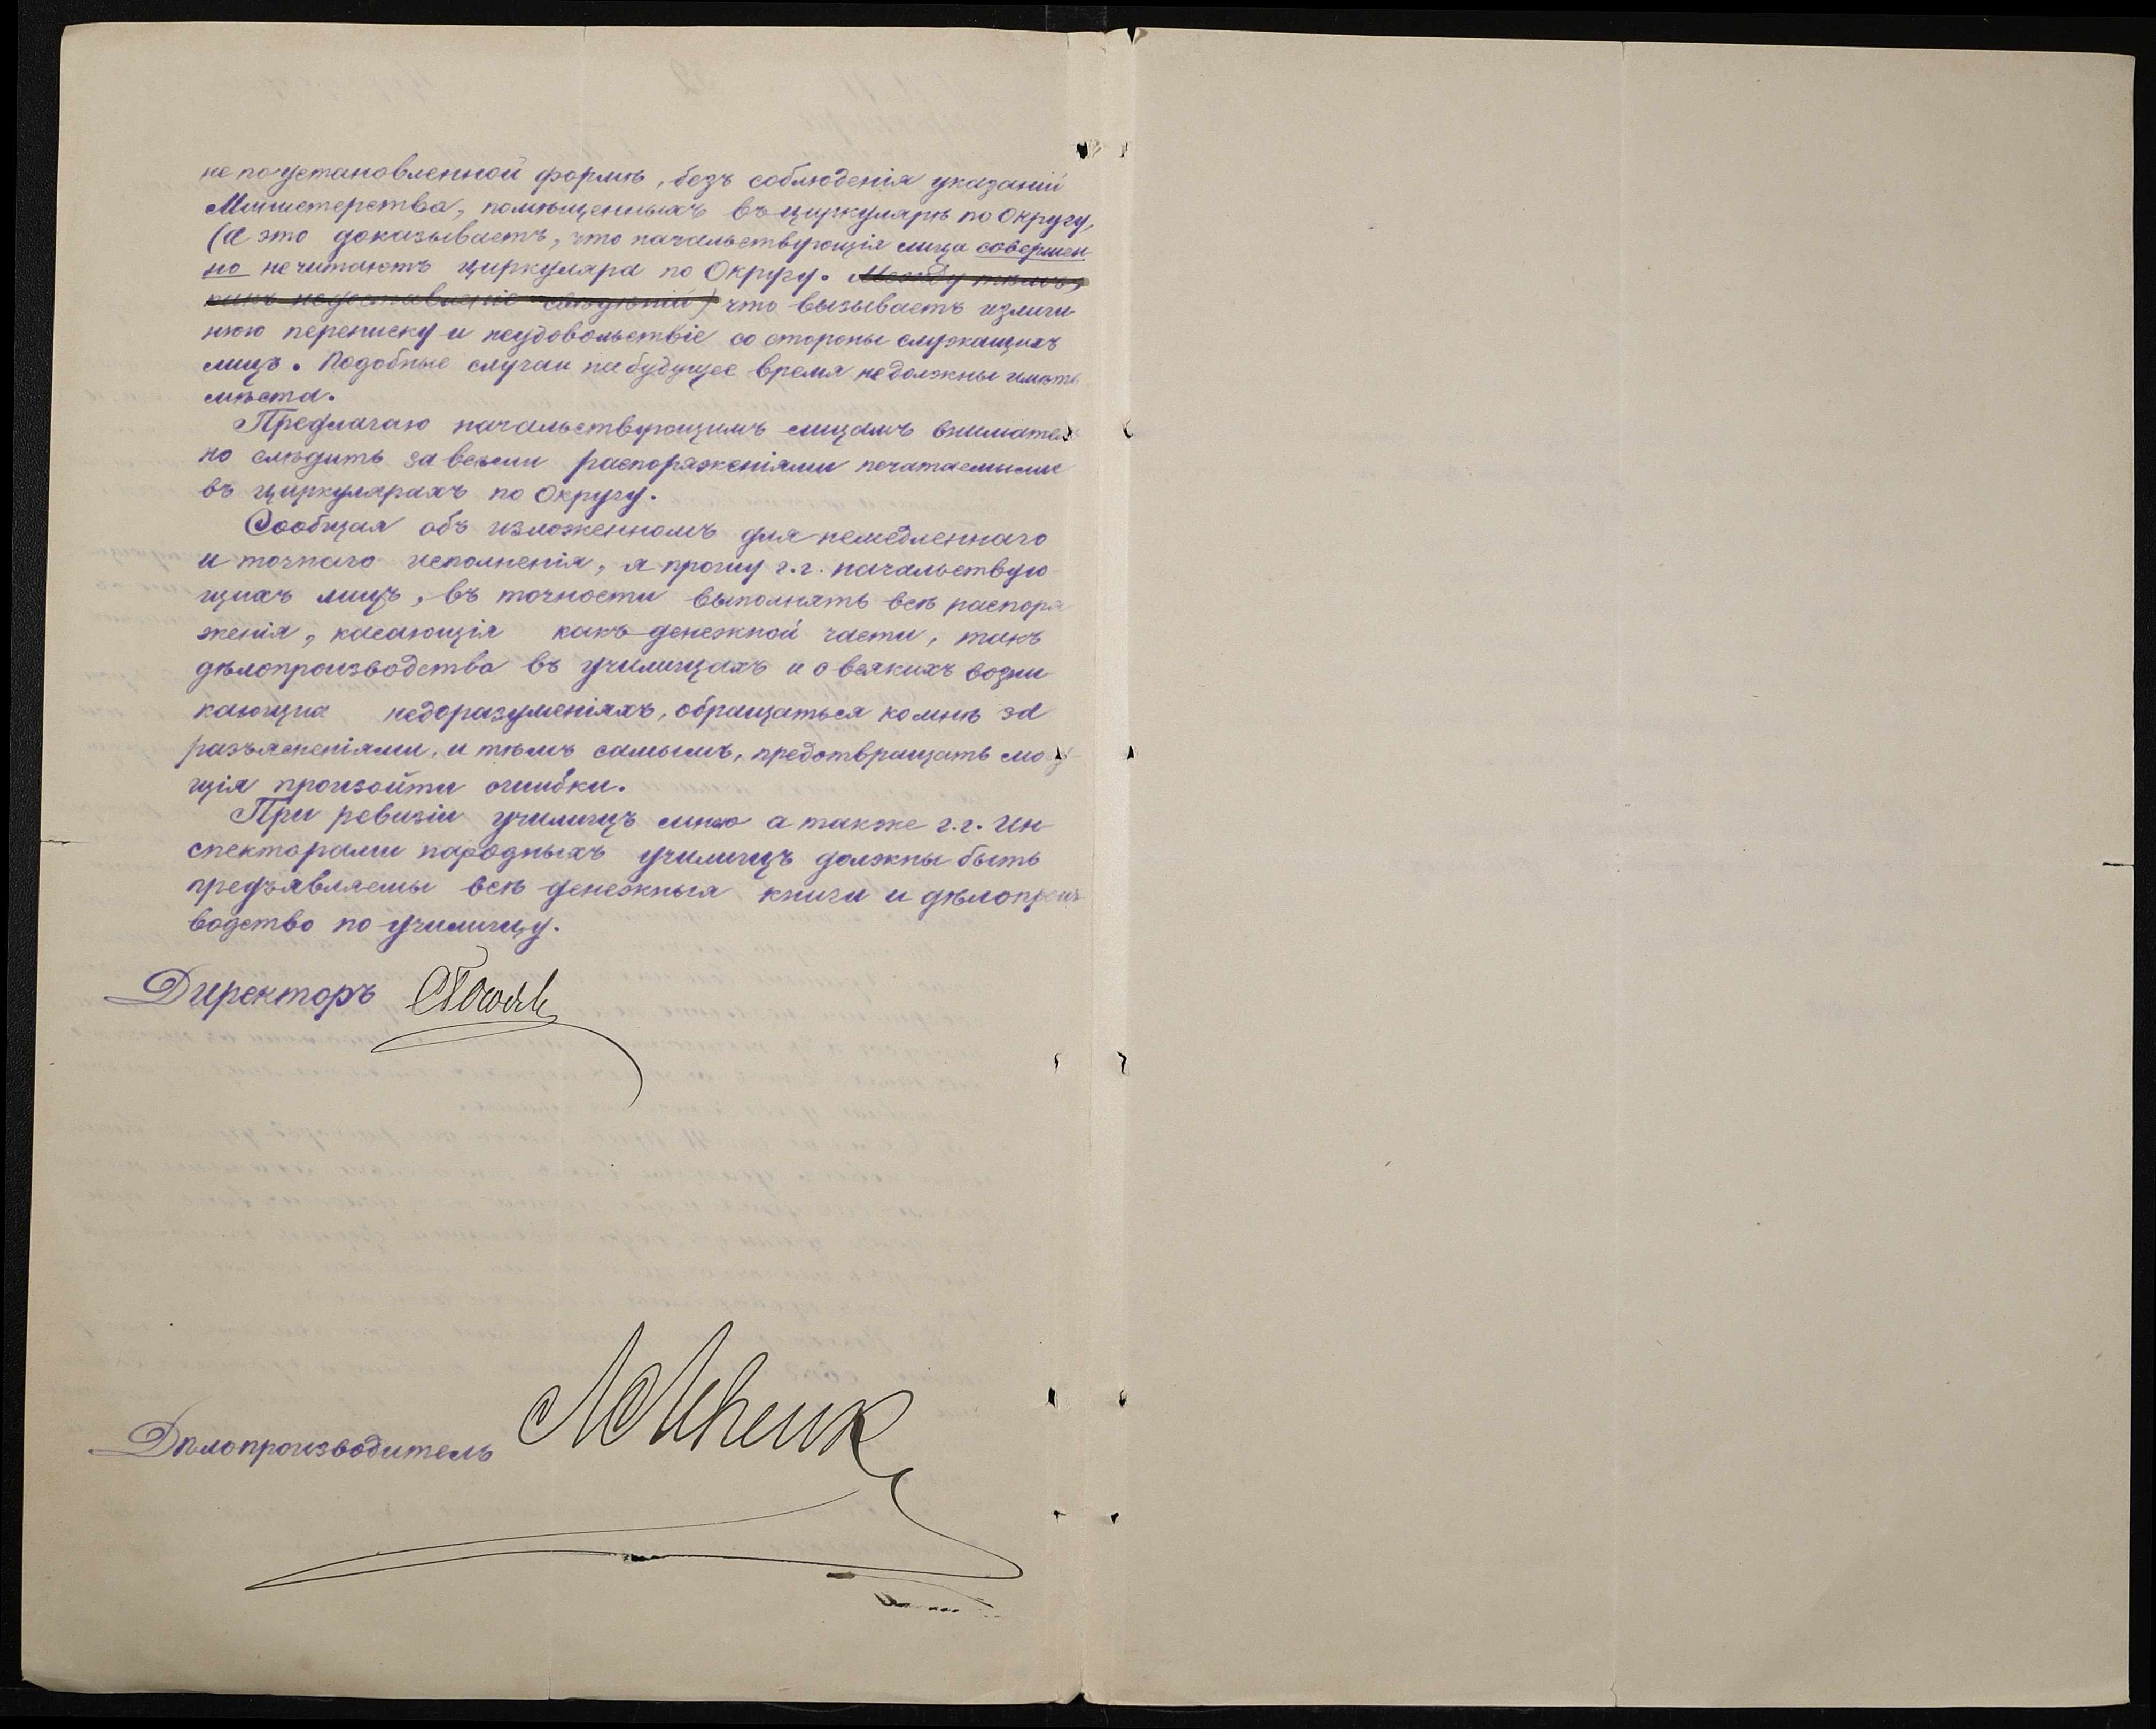 не по установленной формѣ, безъ соблюденія указаній
Министерства, помѣщенныхъ въ циркулярѣ по Округу,
(а это доказываетъ, что начальствующія лица совершен
но не читаютъ циркуляра по Округу. Между тѣмъ,
какъ недоставленіе свѣдѣній) что вызываетъ излиш
нюю переписку и неудовольствіе со стороны служащихъ
лицъ. Подобные случаи на будущее время не должны имѣть
мѣста.
Предлагаю начальствующимъ лицамъ вниматель
но слѣдить за всѣми распоряженіями печатаемыми
въ циркулярахъ по Округу.
Сообщая объ изложенномъ для немедленнаго
и точнаго исполненія, я прошу г.г. начальствую
щихъ лицъ, въ точности выполнять всѣ распоря
женія, касающія какъ денежной части, такъ
дѣлопроизводства въ училищахъ и о всякихъ возни
кающиа недоразуменіяхъ, обращаться ко мнѣ за
разъясненіями, и тѣмъ самымъ, предотвращать могу
щія произойти ошибки.
При ревизіи училищъ мною а также г.г. Ин
спекторами народныхъ училищъ должны быть
предъявляемы всѣ денежныя книги и дѣлопроиз
водство по училищу.
Директоръ
Дѣлопроизводитель